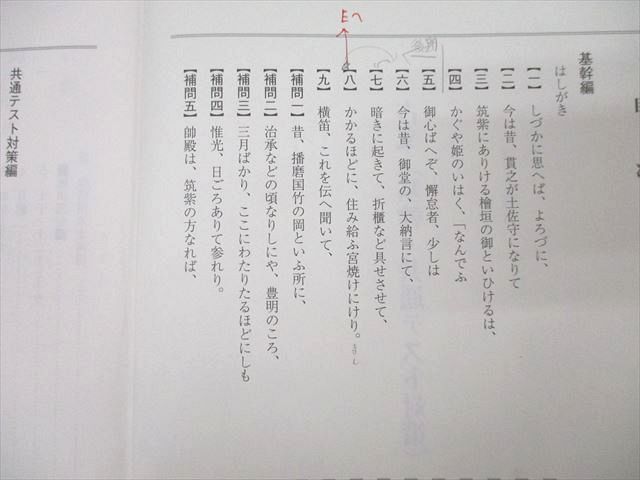 基幹編
はしがき
【一】 しづかに思へば、よろづに、
【二】 今は昔、貫之が土佐守になりて
【三】 筑紫にありける檜垣の御といひけるは、
【四】 かぐや姫のいはく、「なんでふ
【五】 御心ばへぞ、懈怠者、少しは
【六】 今は昔、御堂の、大納言にて、
【七】 暗きに起きて、折櫃など具せさせて、
【八】 かかるほどに、住み給ふ宮焼けにけり。
【九】 横笛、これを伝へ聞いて、
【補問一】 昔、播磨国竹の岡といふ所に、
【補問二】 治承などの頃なりしにや、豊明のころ、
【補問三】 三月ばかり、ここにわたりたるほどにしも
【補問四】 惟光、日ごろありて参れり。
【補問五】 帥殿は、筑紫の方なれば、
共通テスト対策編
Eへ